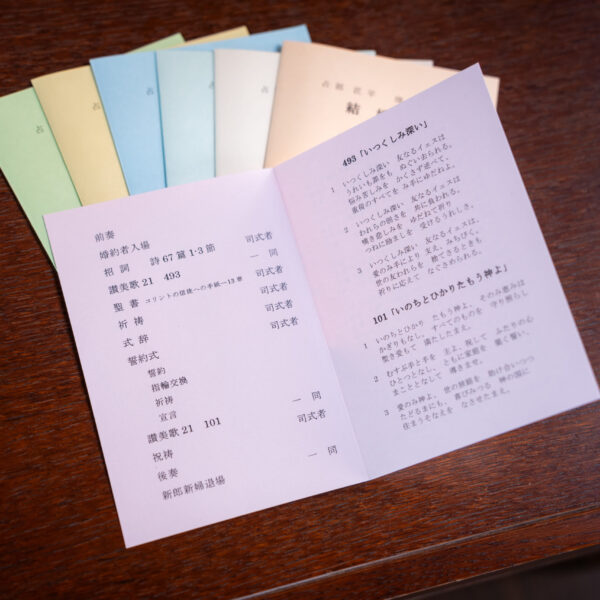 占
占
占
占
占部 匠平
結
前奏
婚約者入場
招詞 詩67篇1·3節 司式者
讃美歌21 493 一同
聖書 コリントの信徒への手紙一13章 司式者
祈祷 司式者
式辞 司式者
誓約式 司式者
誓約
指輪交換
祈祷
宣言
讃美歌21 101 一同
祝祷 司式者
後奏 一同
新郎新婦退場
493「いつくしみ深い」
1 いつくしみ深い 友なるイエスは
うれいも罪をも ぬぐい去られる。
悩み苦しみを かくさず述べて、
重荷のすべてを み手にゆだねよ。
2 いつくしみ深い 友なるイエスは
われらの弱さを 共に負われる。
嘆き悲しみを ゆだねて祈り
つねに励ましを 受けるうれしさ。
3 いつくしみ深い 友なるイエスは、
愛のみ手により 支え、みちびく。
世の友われらを 捨てさるときも
祈りに応えて なぐさめられる。
101「いのちとひかりたもう神よ」
1 いのちとひかり たもう神よ、そのみ恵みは
かぎりもなし。すべてのものを 守り照らし
尊き愛もて 満たしたまえ。
2 むすぶ手と手を 主よ、祝して ふたりの心
ひとつとなし、ともに家庭を 築く誓い、
まこととなして 導きませ。
3 愛のみ神よ、世の旅路を 助け合いつつ
たどるまにも、喜びみつる 神の国に
住まうそなえを なさせたまえ。